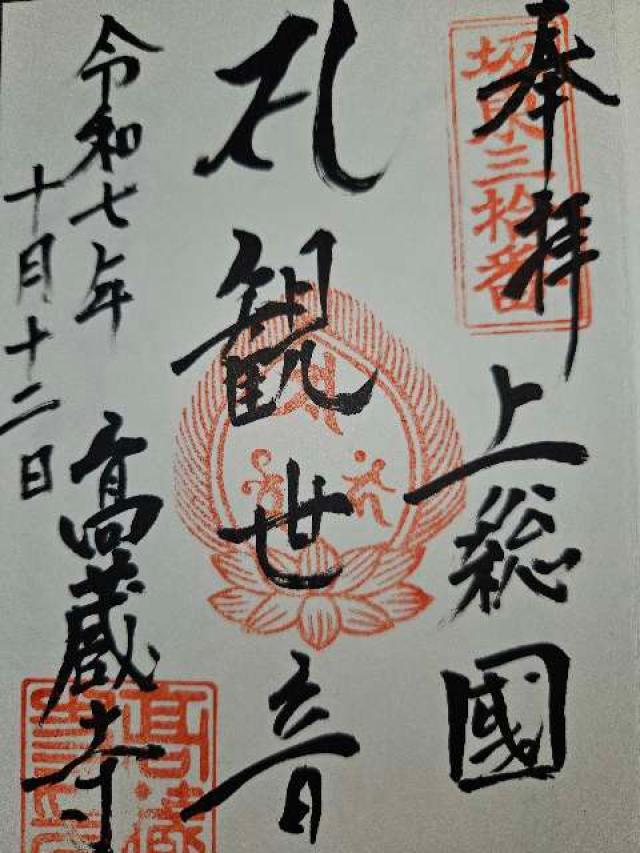 奉拝
坂東三拾番
上総國
観世音
令和七年
十月十二日
高蔵寺